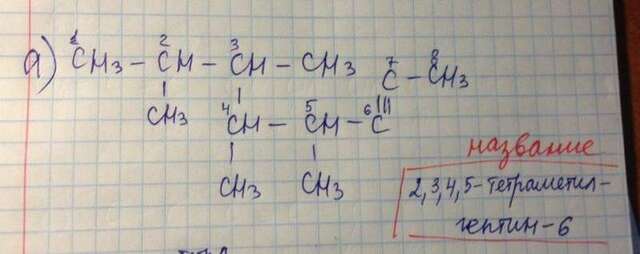 а) 1 2 3 7 8
CH3 – CH – CH – CH3 C – CH3
| | |||
CH3 4 CH – 5 CH – 6 C
| |
CH3 CH3
название
2,3,4,5-тетраметил-
гептин-6